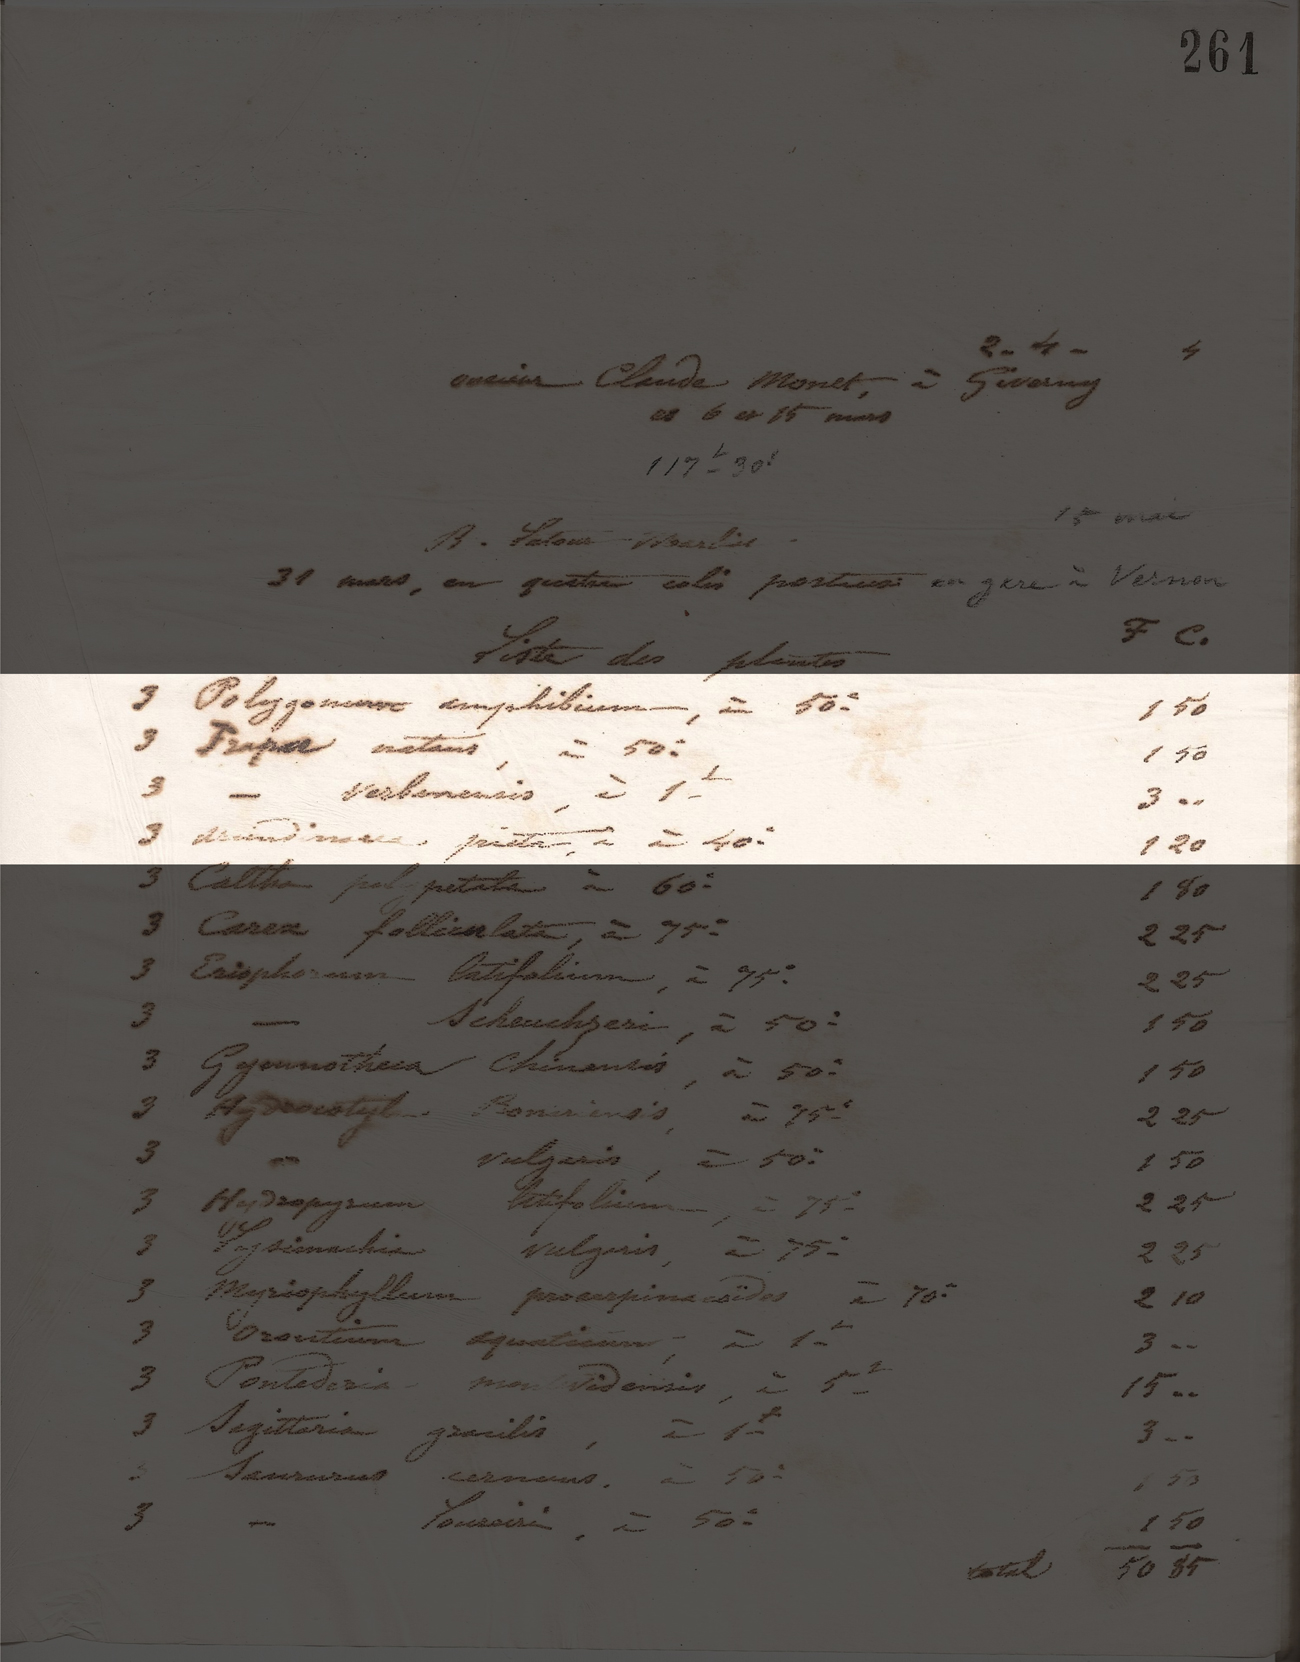 261
2 - 4 - 4
Claude Monet, à Giverny
et 6 et 15 mars
117 f 30 c
15 mai
B. Latour Marliac
31 mars, en quatre colis postaux en gare à Vernon
F C.
Liste des plantes
3 Polygonum amphibium, à 50 c 1 50
3 Trapa natans, à 50 c 1 50
3 — verbanensis, à 1 f 3 --
3 arundinacea picta, à à 40 c 1 20
3 Caltha polypetala à 60 c 1 80
3 Carex folliculata, à 75 c 2 25
3 Eriophorum latifolium, à 75 c 2 25
3 — Scheuchzeri, à 50 c 1 50
3 Gymnotheca chinensis, à 50 c 1 50
3 Hydrocotyle Bonariensis, à 75 c 2 25
3 — vulgaris, à 50 c 1 50
3 Hydropyrum latifolium, à 75 c 2 25
3 Lysimachia vulgaris, à 75 c 2 25
3 Myriophyllum proserpinacoïdes à 70 c 2 10
3 Orontium aquaticum, à 1 f 3 --
3 Pontederia montevidensis, à 5 f 15 --
3 Sagittaria gracilis, à 1 f 3 --
3 Saururus cernuus, à 50 c 1 50
3 — Loureiri, à 50 c 1 50
total 50 85